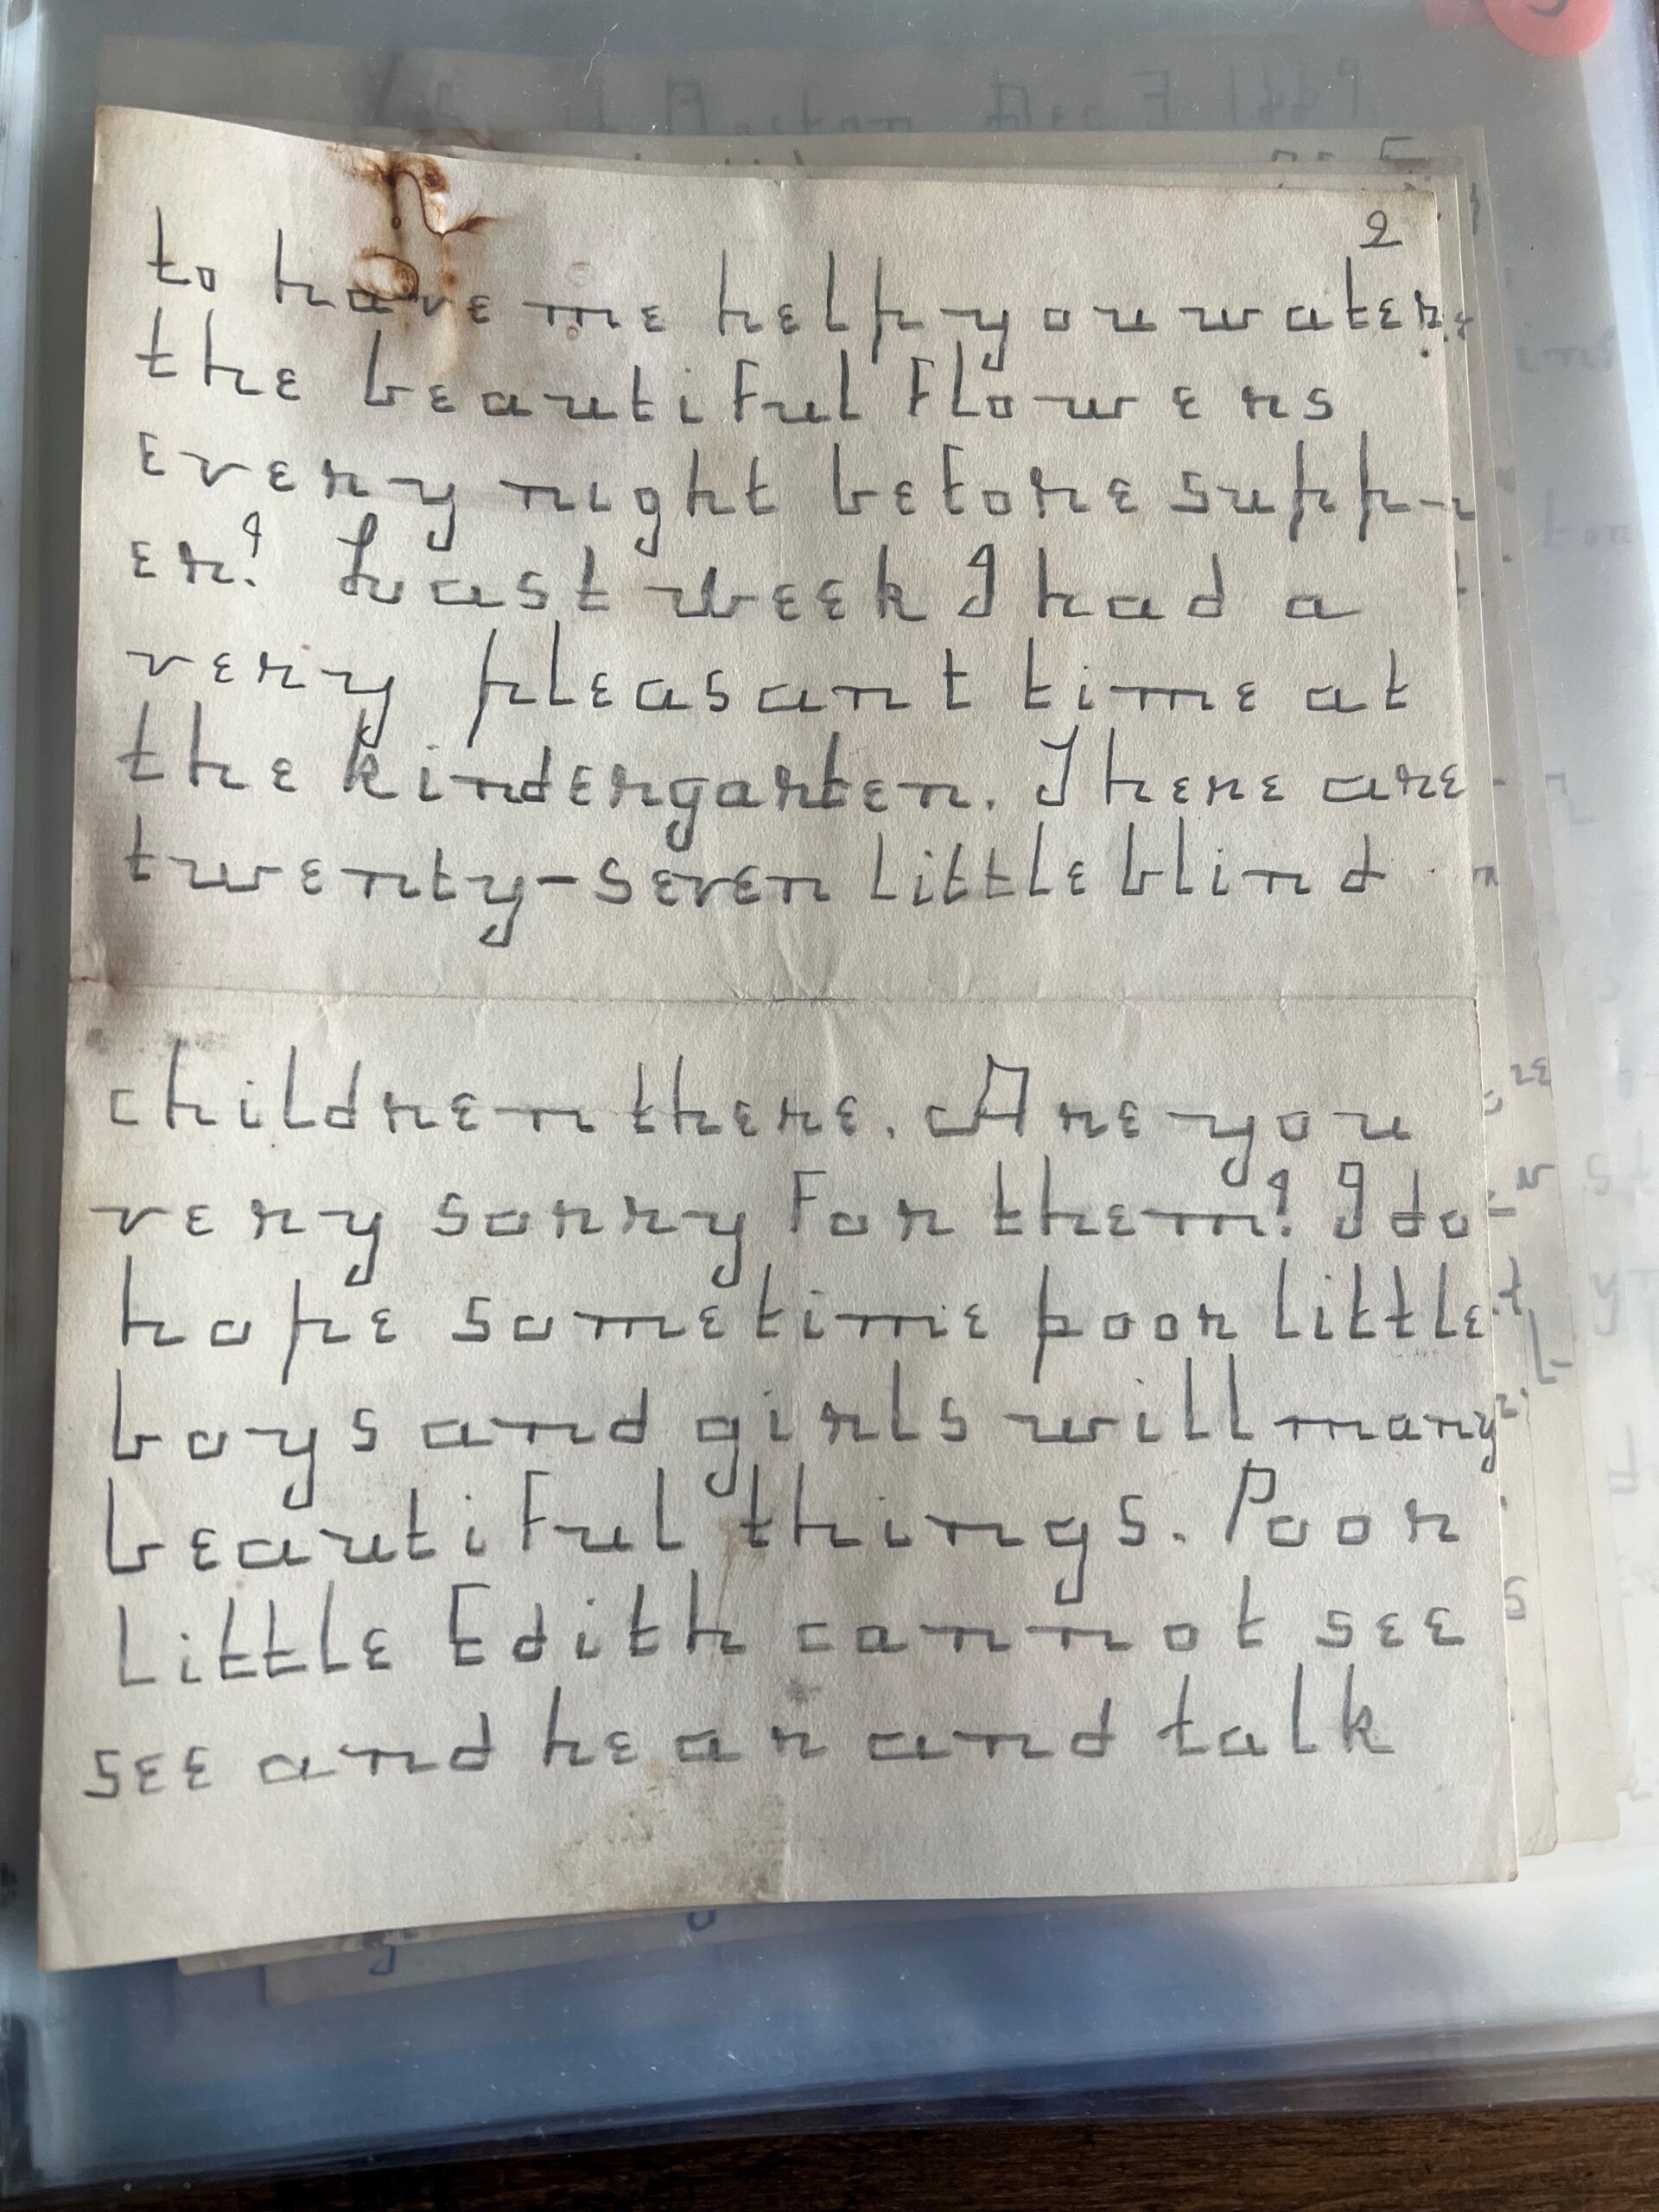 2
to have me help you water
the beautiful flowers
every night before supp-
er? Last week I had a
very pleasant time at
the kindergarten. There are
twenty-seven little blind
children there. Are you
very sorry for them? I do
hope sometime poor little
boys and girls will many
beautiful things. Poor
little Edith cannot see
see and hear and talk